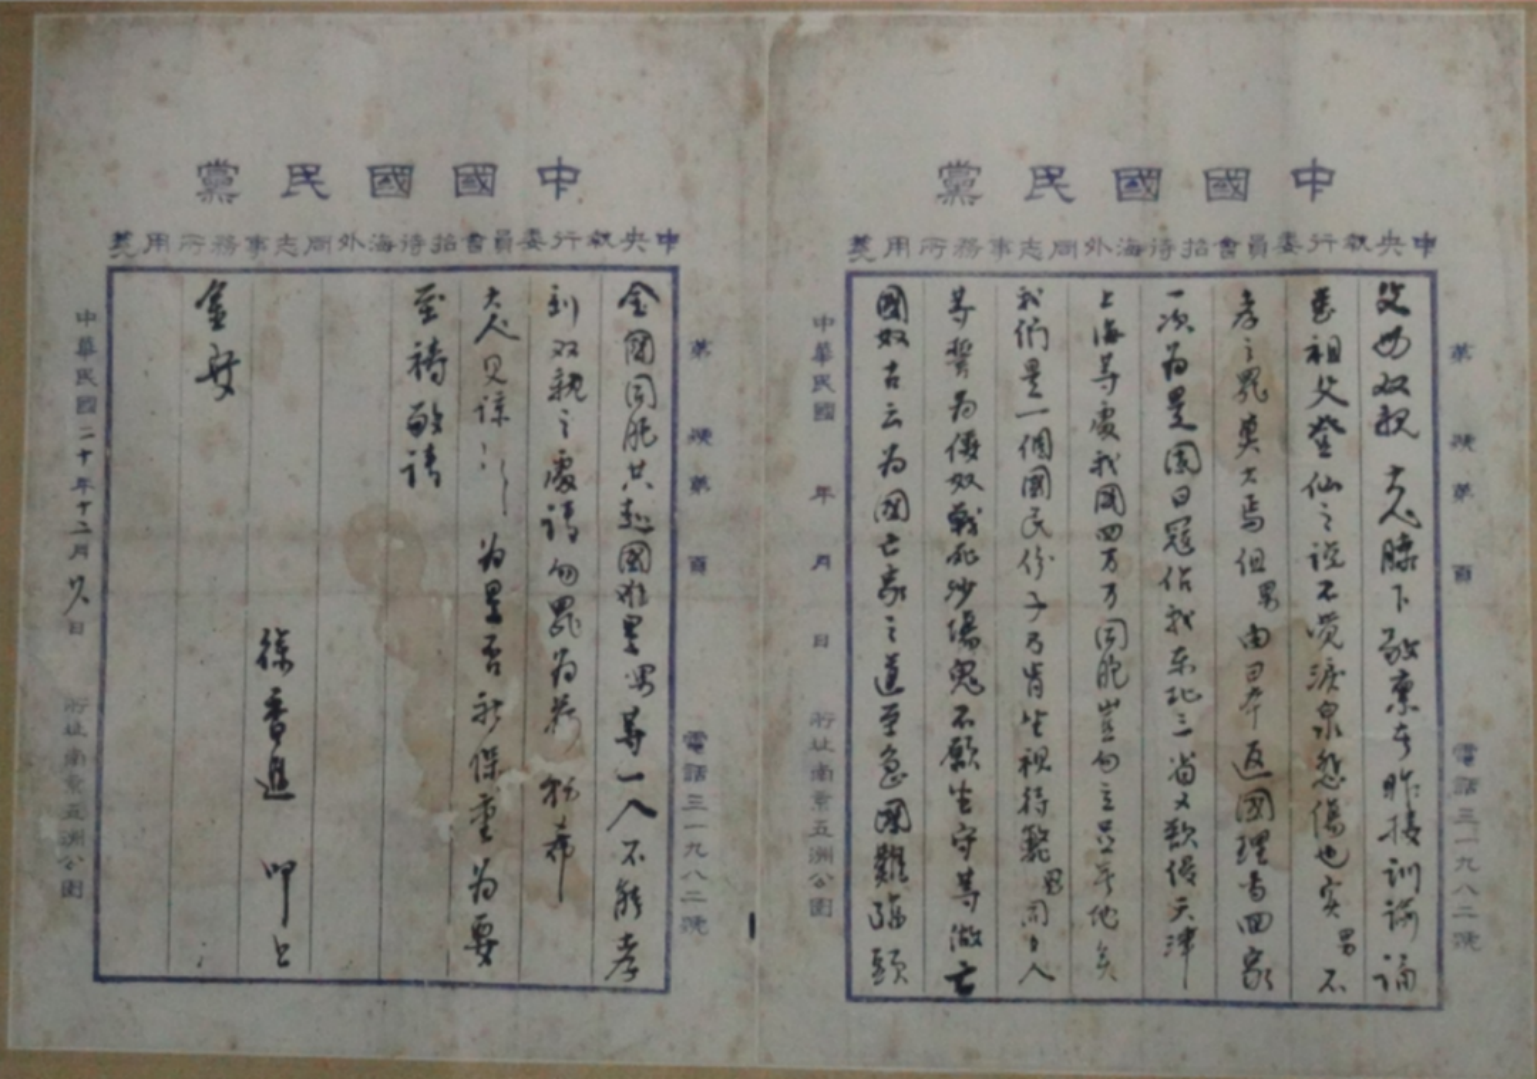 中國國民黨
中央執行委員會招待海外同志事務所用箋
第 號第 頁
電話三一九八二號
父母双親大人膝下敬稟者昨接訓諭誦
悉祖父登仙之说不覺淚泉悲傷也实男不
孝之罪莫大焉但男由日本返國理當回家
一次为是因日寇佔我东北三省又欲侵天津
上海等處我國四万万同胞豈
我們是一個國民份子乃肯坐視待斃男同日人
等誓为 奴戰死沙場鬼不願坐守等做亡
國奴古云为國亡家之道至急國難臨頭
中華民國 年 月 日 所址南京五洲公園
中國國民黨
中央執行委員會招待海外同志事務所用箋
第 號第 頁
電話三一九八二號
全國同胞共赴國难男等一人不能孝
到双親之處請勿罪为荷 祈希
大人见谅 为是否祈保重为要
至禱敬請
金安
徐香進 叩上
中華民國二十年十二月 日 所址南京五洲公園